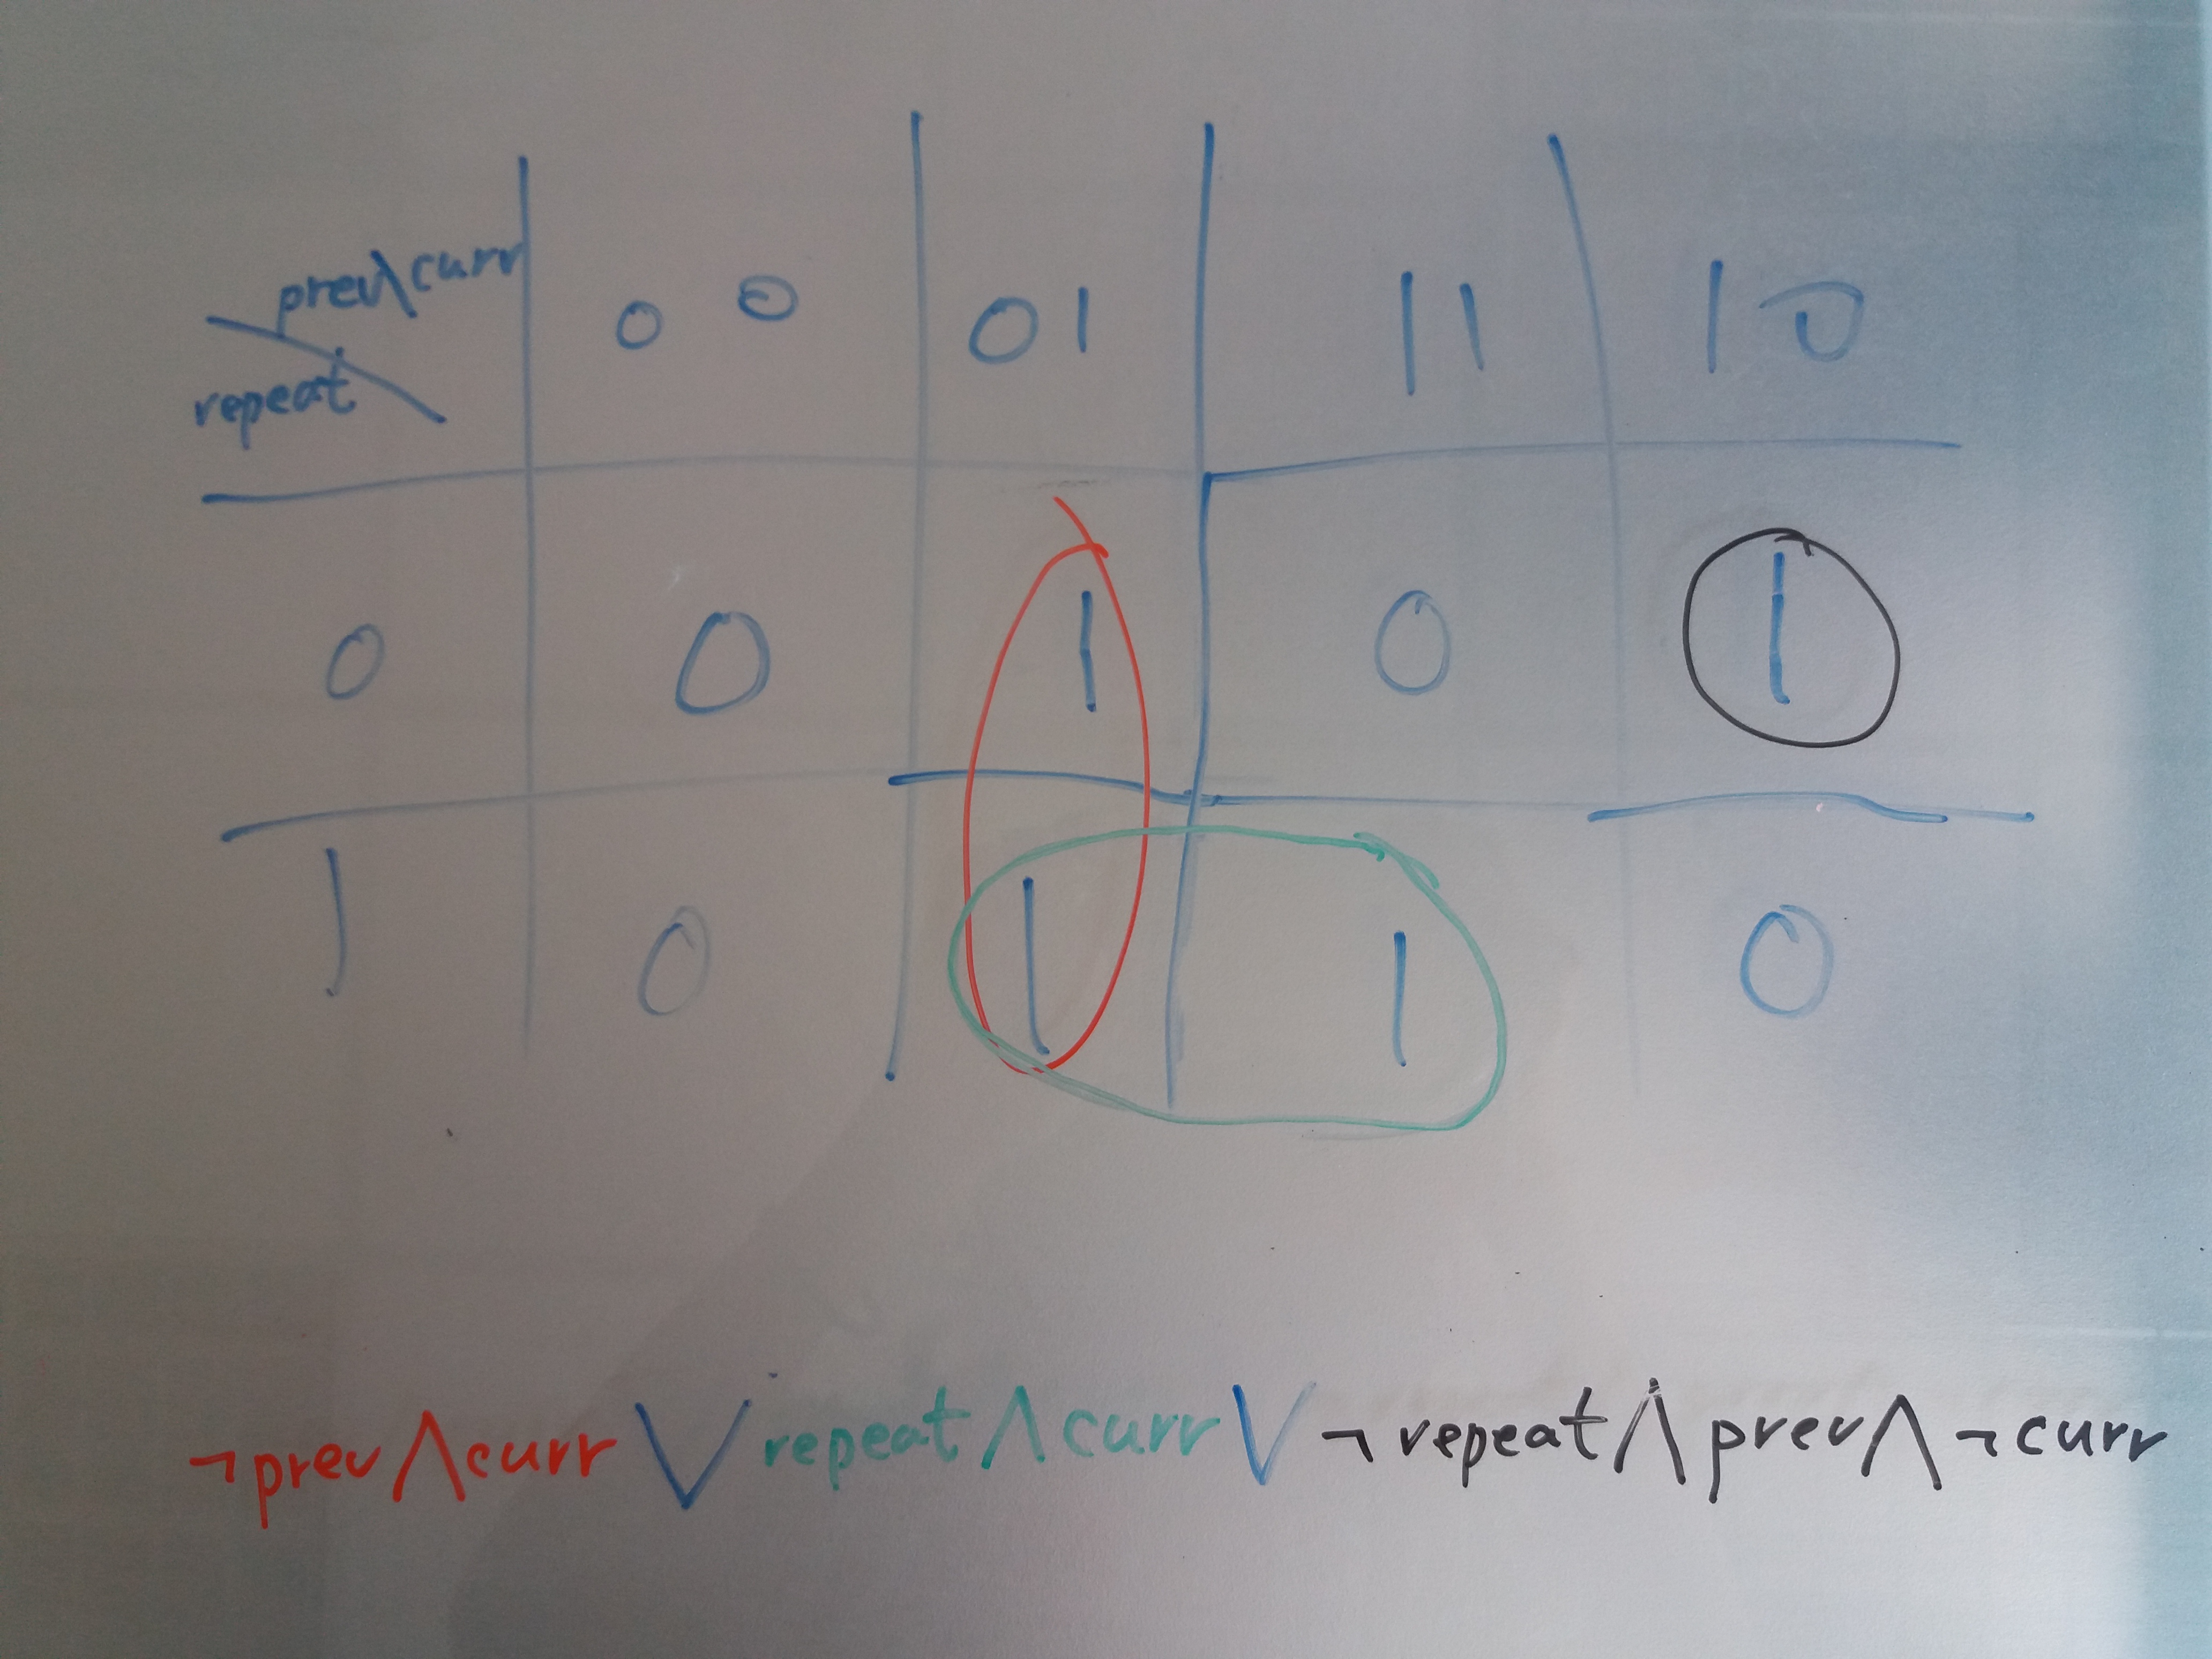 prev\curr 00 01 11 10
repeat
0 0 1 0 1
1 0 1 1 0
¬prev∧curr ∨ repeat∧curr ∨ ¬repeat∧prev∧¬curr